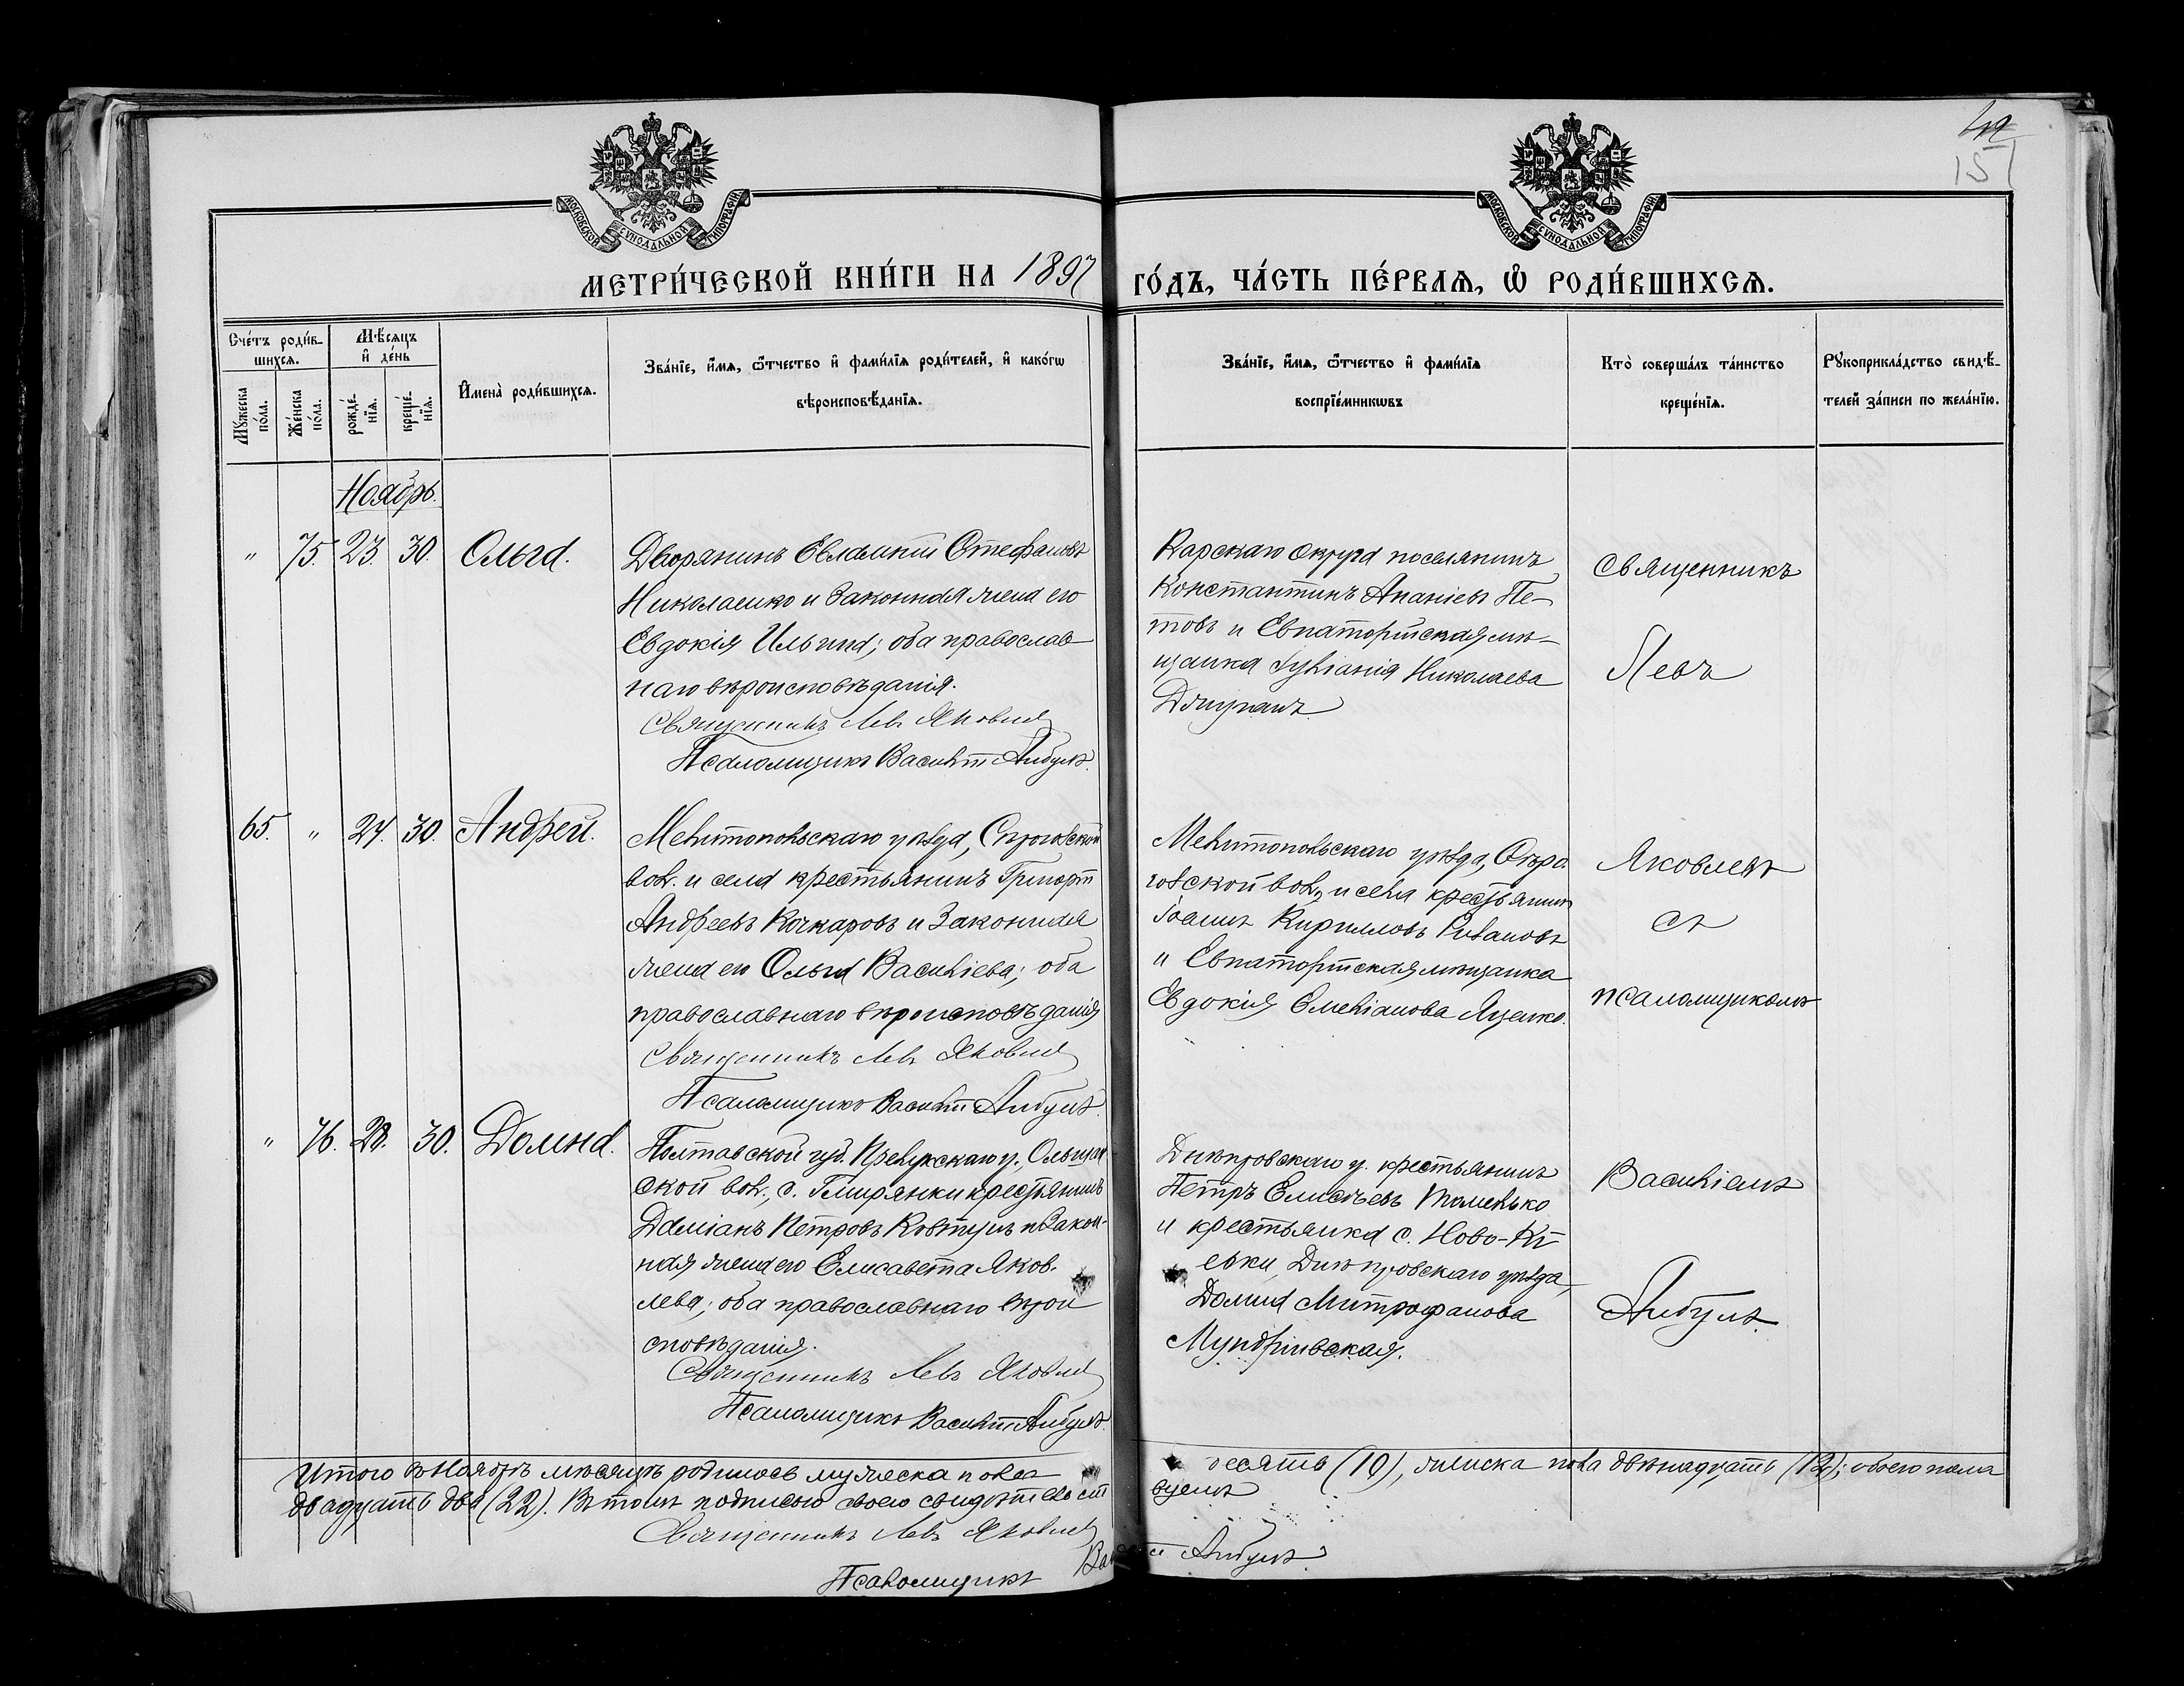 42
151
МОСКОВСКОЙ СѴНОДАЛЬНОЙ ТИПОГРАФІИ
МОСКОВСКОЙ СѴНОДАЛЬНОЙ ТИПОГРАФІИ
МЕТРИ́ЧЕСКОЙ КНИ́ГИ НА 1897 ГО́ДЪ, ЧА́СТЬ ПЕ́РВАЯ, Ѡ҆ РОДИ́ВШИХСЯ.
Сче́тъ роди́в-
шихся.
Мѣ́сяцъ
и҆ де́нь
Мꙋ́жеска по́ла.
Же́нска по́ла.
рожде́-нїѧ.
креще́-нїѧ.
И҆мена̀ роди́вшихся.
Зва́нїе, и҆́мѧ, ѻ҆́тчество и҆ фами́лїѧ роди́телей, и҆ како́гѡ
вѣроисповѣ́данїѧ.
Зва́нїе, и҆́мѧ, ѻ҆́тчество и҆ фами́лїѧ
воспрїе́мникѡвъ
Кто̀ соверша́лъ та́инство
креще́нїѧ.
Рꙋкоприкла́дство свидѣ́-
телей за́писи по жела́нїю.
Ноябрь.
" 75. 23. 30. Ольга.
Дворянинъ Евлампій Стефановъ
Николаенко и законная жена его
Евдокія Ильина; оба православ
наго вѣроисповѣданія.
Священникъ Левъ Яковлев
Псаломщикъ Василій
Карскаго округа поселянинъ
Константинъ Ананіевъ Пе-
товъ и Евпаторійская мѣ-
щанка Іуліанія Николаева
Священникъ
Левъ
65. " 24. 30. Андрей.
Мелитопольскаго уѣзда,
вол. и села крестьянинъ Григорій
Андреевъ Кочкаровъ и законная
жена его Ольга Василіева; оба
православнаго вѣроисповѣданія
Священникъ Левъ Яковлев
Псаломщикъ Василій
Мелитопольскаго уѣзда,
говской вол. и села крестьянинъ
Іоаннъ Кирилловъ
и Евпаторійская мѣщанка
Евдокія Емеліанова Яценко.
Яковлевъ
съ
псаломщикомъ
" 76. 28. 30. Домна.
Полтавской губ. Прелукскаго у., Ольшан
ской вол., с. Гмирянки крестьянинъ
Даміанъ Петровъ Ковтунъ и закон-
ная жена его Елисавета Яков-
лева; оба православнаго вѣрои
сповѣданія.
Священникъ Левъ Яковлев
Псаломщикъ Василій
Днѣпровскаго у. крестьянинъ
Петръ Елисѣевъ
и крестьянка с. Ново-Кі-
евки, Днѣпровскаго уѣзда,
Домна Митрофанова
Василіемъ
Итого въ Ноябрѣ мѣсяцѣ родилось мужеска пола десять (10), женска пола двѣнадцать (12); обоего пола
двадцать два (22). Въ томъ подписью своею свидѣтельствуемъ
Священникъ Левъ Яковлев
Псаломщикъ Василій